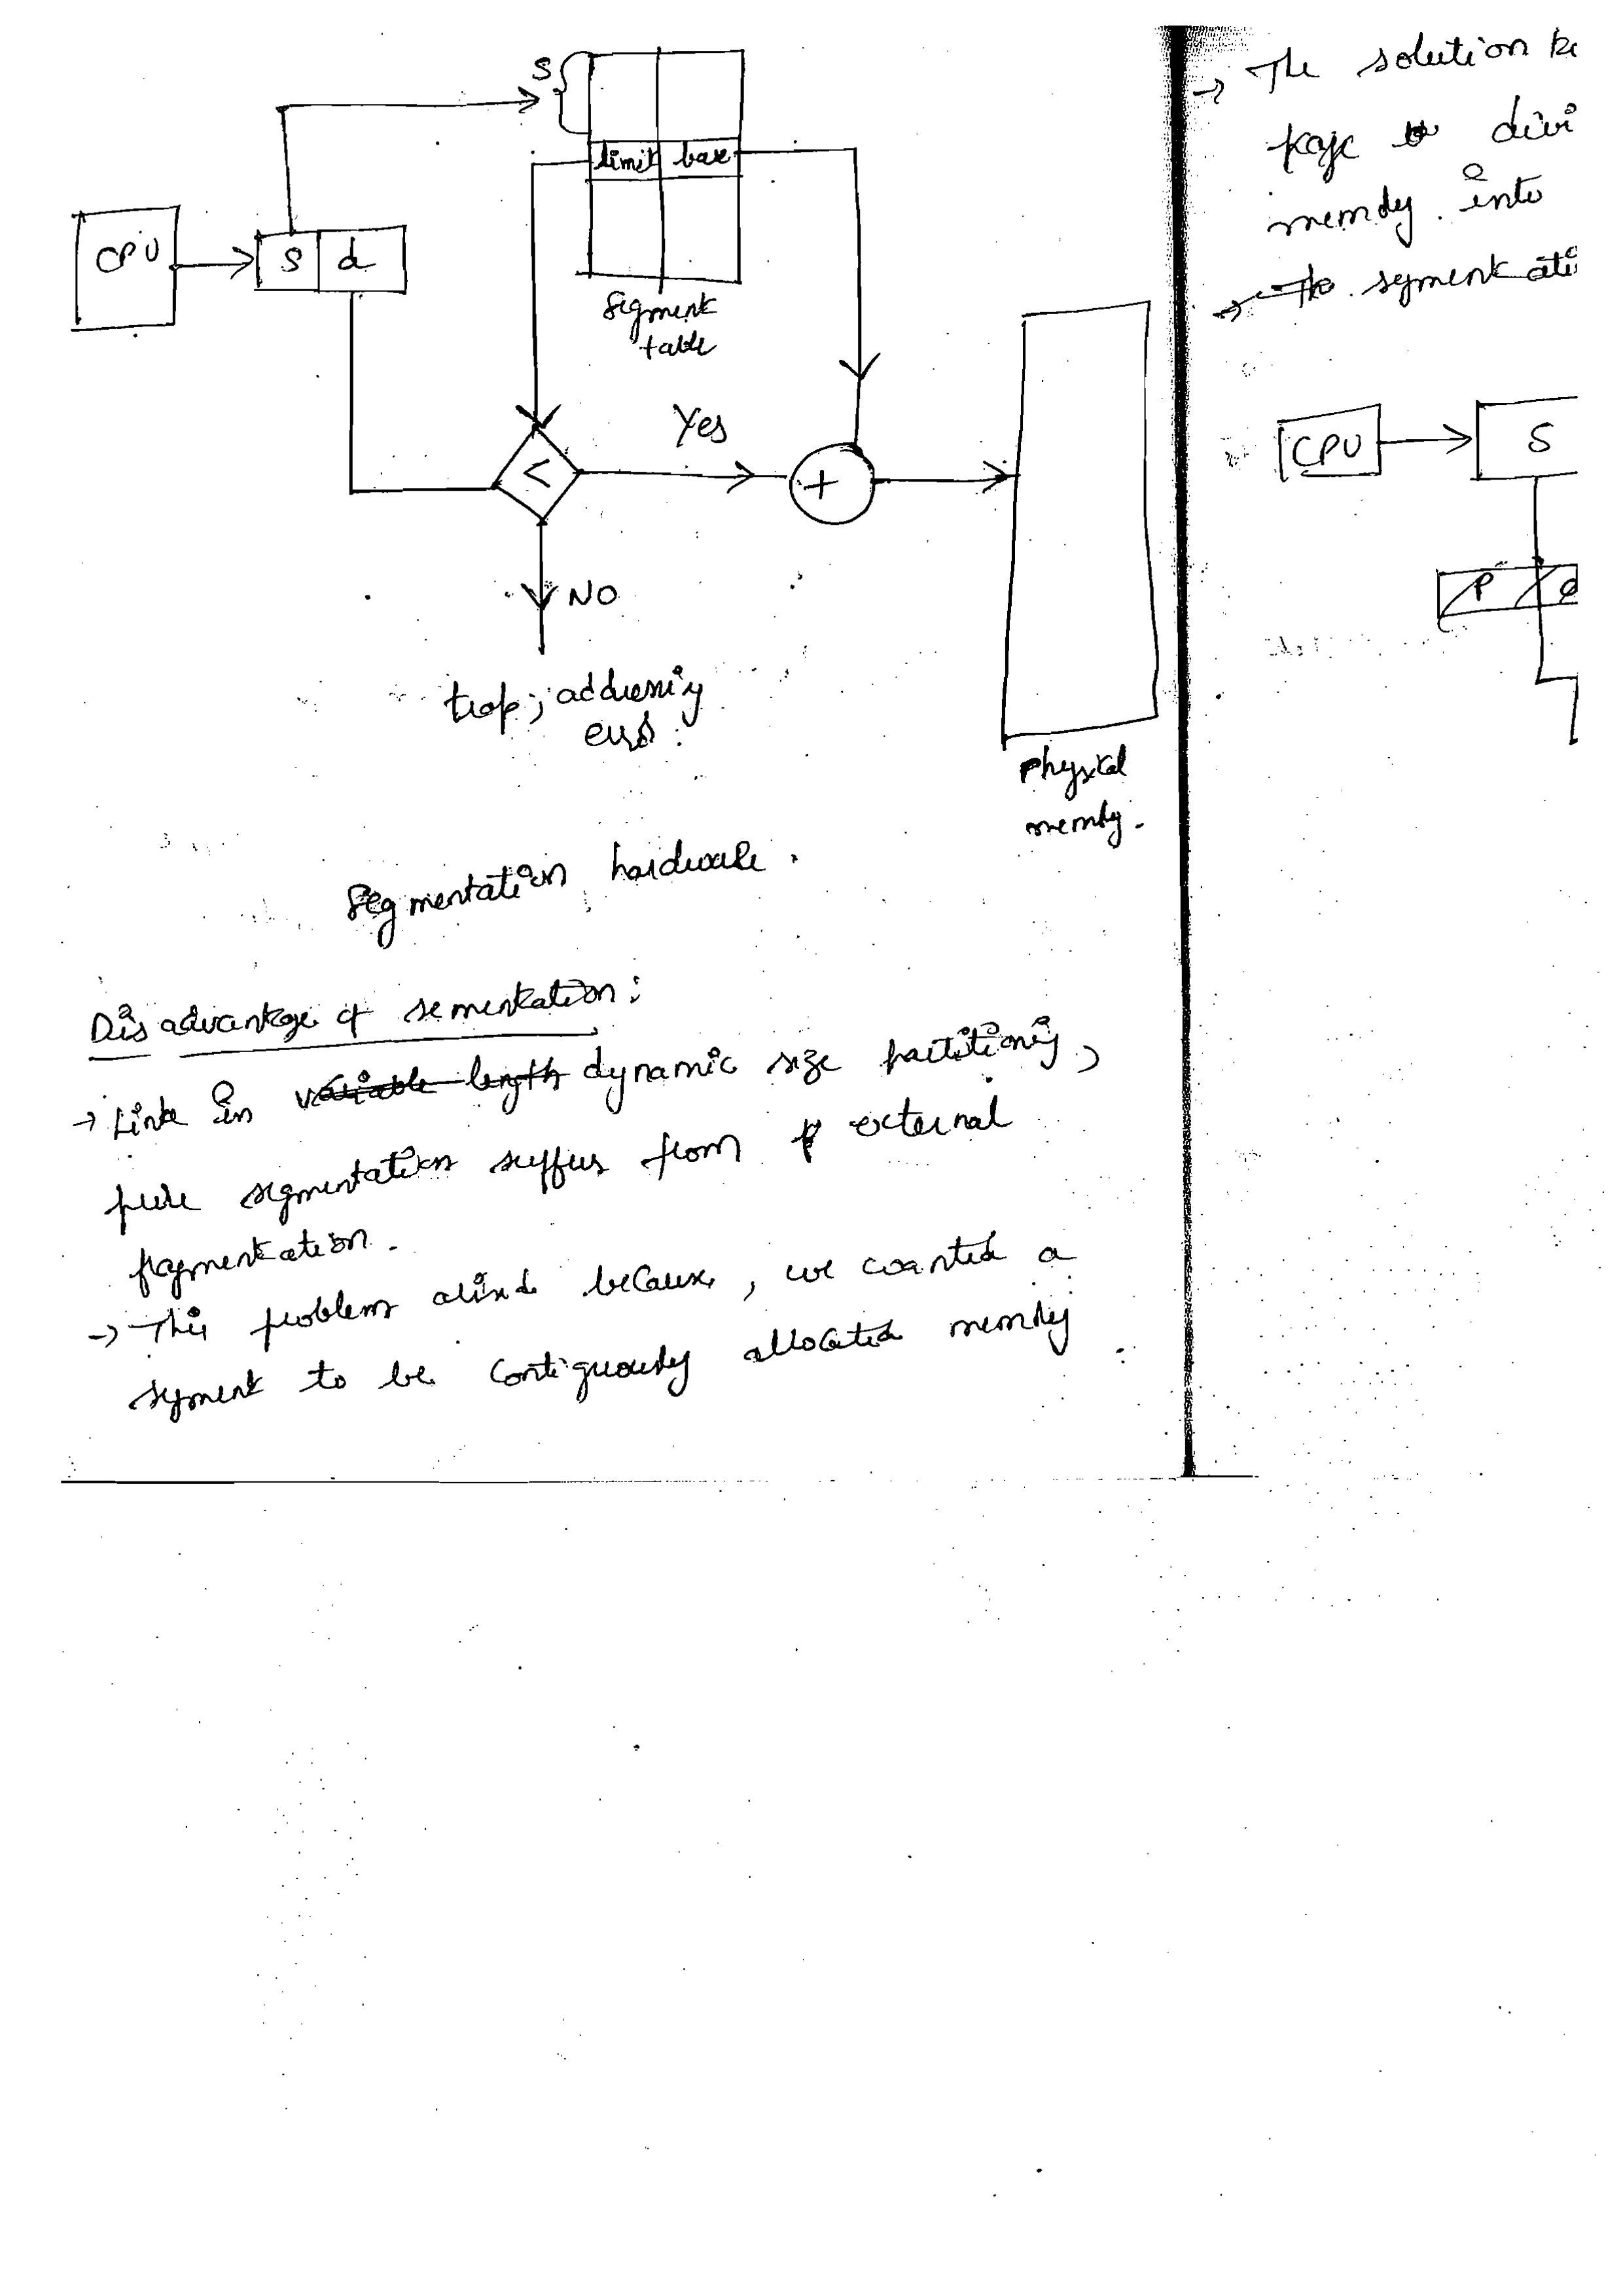 S
limit base
CPU
S d
Segment
table
Yes
<
+
NO
trap; addressing
error.
Physical
memory.
Segmentation hardware.
Disadvantage of sementation:
→ Link in variable length dynamic size partitioning,
pure segmentation suffers from external
fragmentation.
→ This problem because, we wanted a
segment to be contiguously allocated memory
→ The solution
page divi
memory. into
→ The segmentati
CPU
S
P